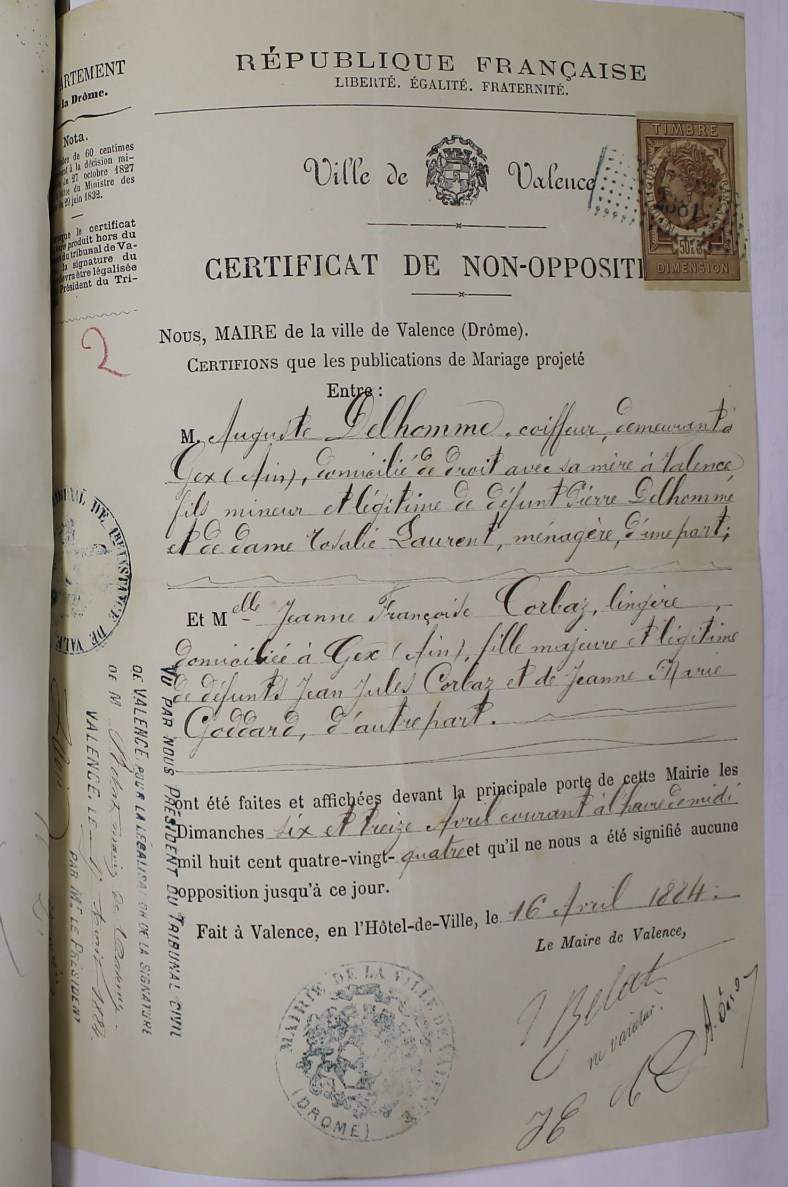 RÉPUBLIQUE FRANÇAISE
LIBERTÉ. ÉGALITÉ. FRATERNITÉ.
ARTEMENT
la Drôme.
Nota.
de 60 centimes
à la décision mi-
27 octobre 1827
du Ministre des
29 juin 1832.
le certificat
produit hors du
du tribunal de Va-
la signature du
devra être légalisée
Président du Tri-
2
Ville de Valence
TIMBRE
RÉPUBLIQUE FRANÇAISE
50c
DIMENSION
CERTIFICAT DE NON-OPPOSITI
NOUS, MAIRE de la ville de Valence (Drôme).
CERTIFIONS que les publications de Mariage projeté
Entre :
M. Auguste Delhomme, coiffeur, demeurant à
Gex (Ain), domicilié de droit avec sa mère à Valence
fils mineur et légitime de défunt Pierre Delhomme
et de dame Rosalie Laurent, ménagère, d'une part;
Et Melle Jeanne Françoise Corbaz, lingère,
domiciliée à Gex (Ain), fille majeure et légitime
de défunts Jean Jules Corbaz et de Jeanne Marie
Goddard, d'autre part.
ont été faites et affichées devant la principale porte de cette Mairie les
Dimanches six et treize Avril courant à l'heure de midi
mil huit cent quatre-vingt-quatre et qu'il ne nous a été signifié aucune
opposition jusqu'à ce jour.
Fait à Valence, en l'Hôtel-de-Ville, le 16 Avril 1884.
Le Maire de Valence,
Belat
ne varietur.
MAIRIE DE LA VILLE DE VALENCE
(DRÔME)
VU PAR NOUS PRÉSIDENT DU TRIBUNAL CIVIL
DE VALENCE POUR LA LÉGALISATION DE LA SIGNATURE
DE M. Belat maire de Valence
VALENCE, LE 1884
PAR Mr LE PRÉSIDENT